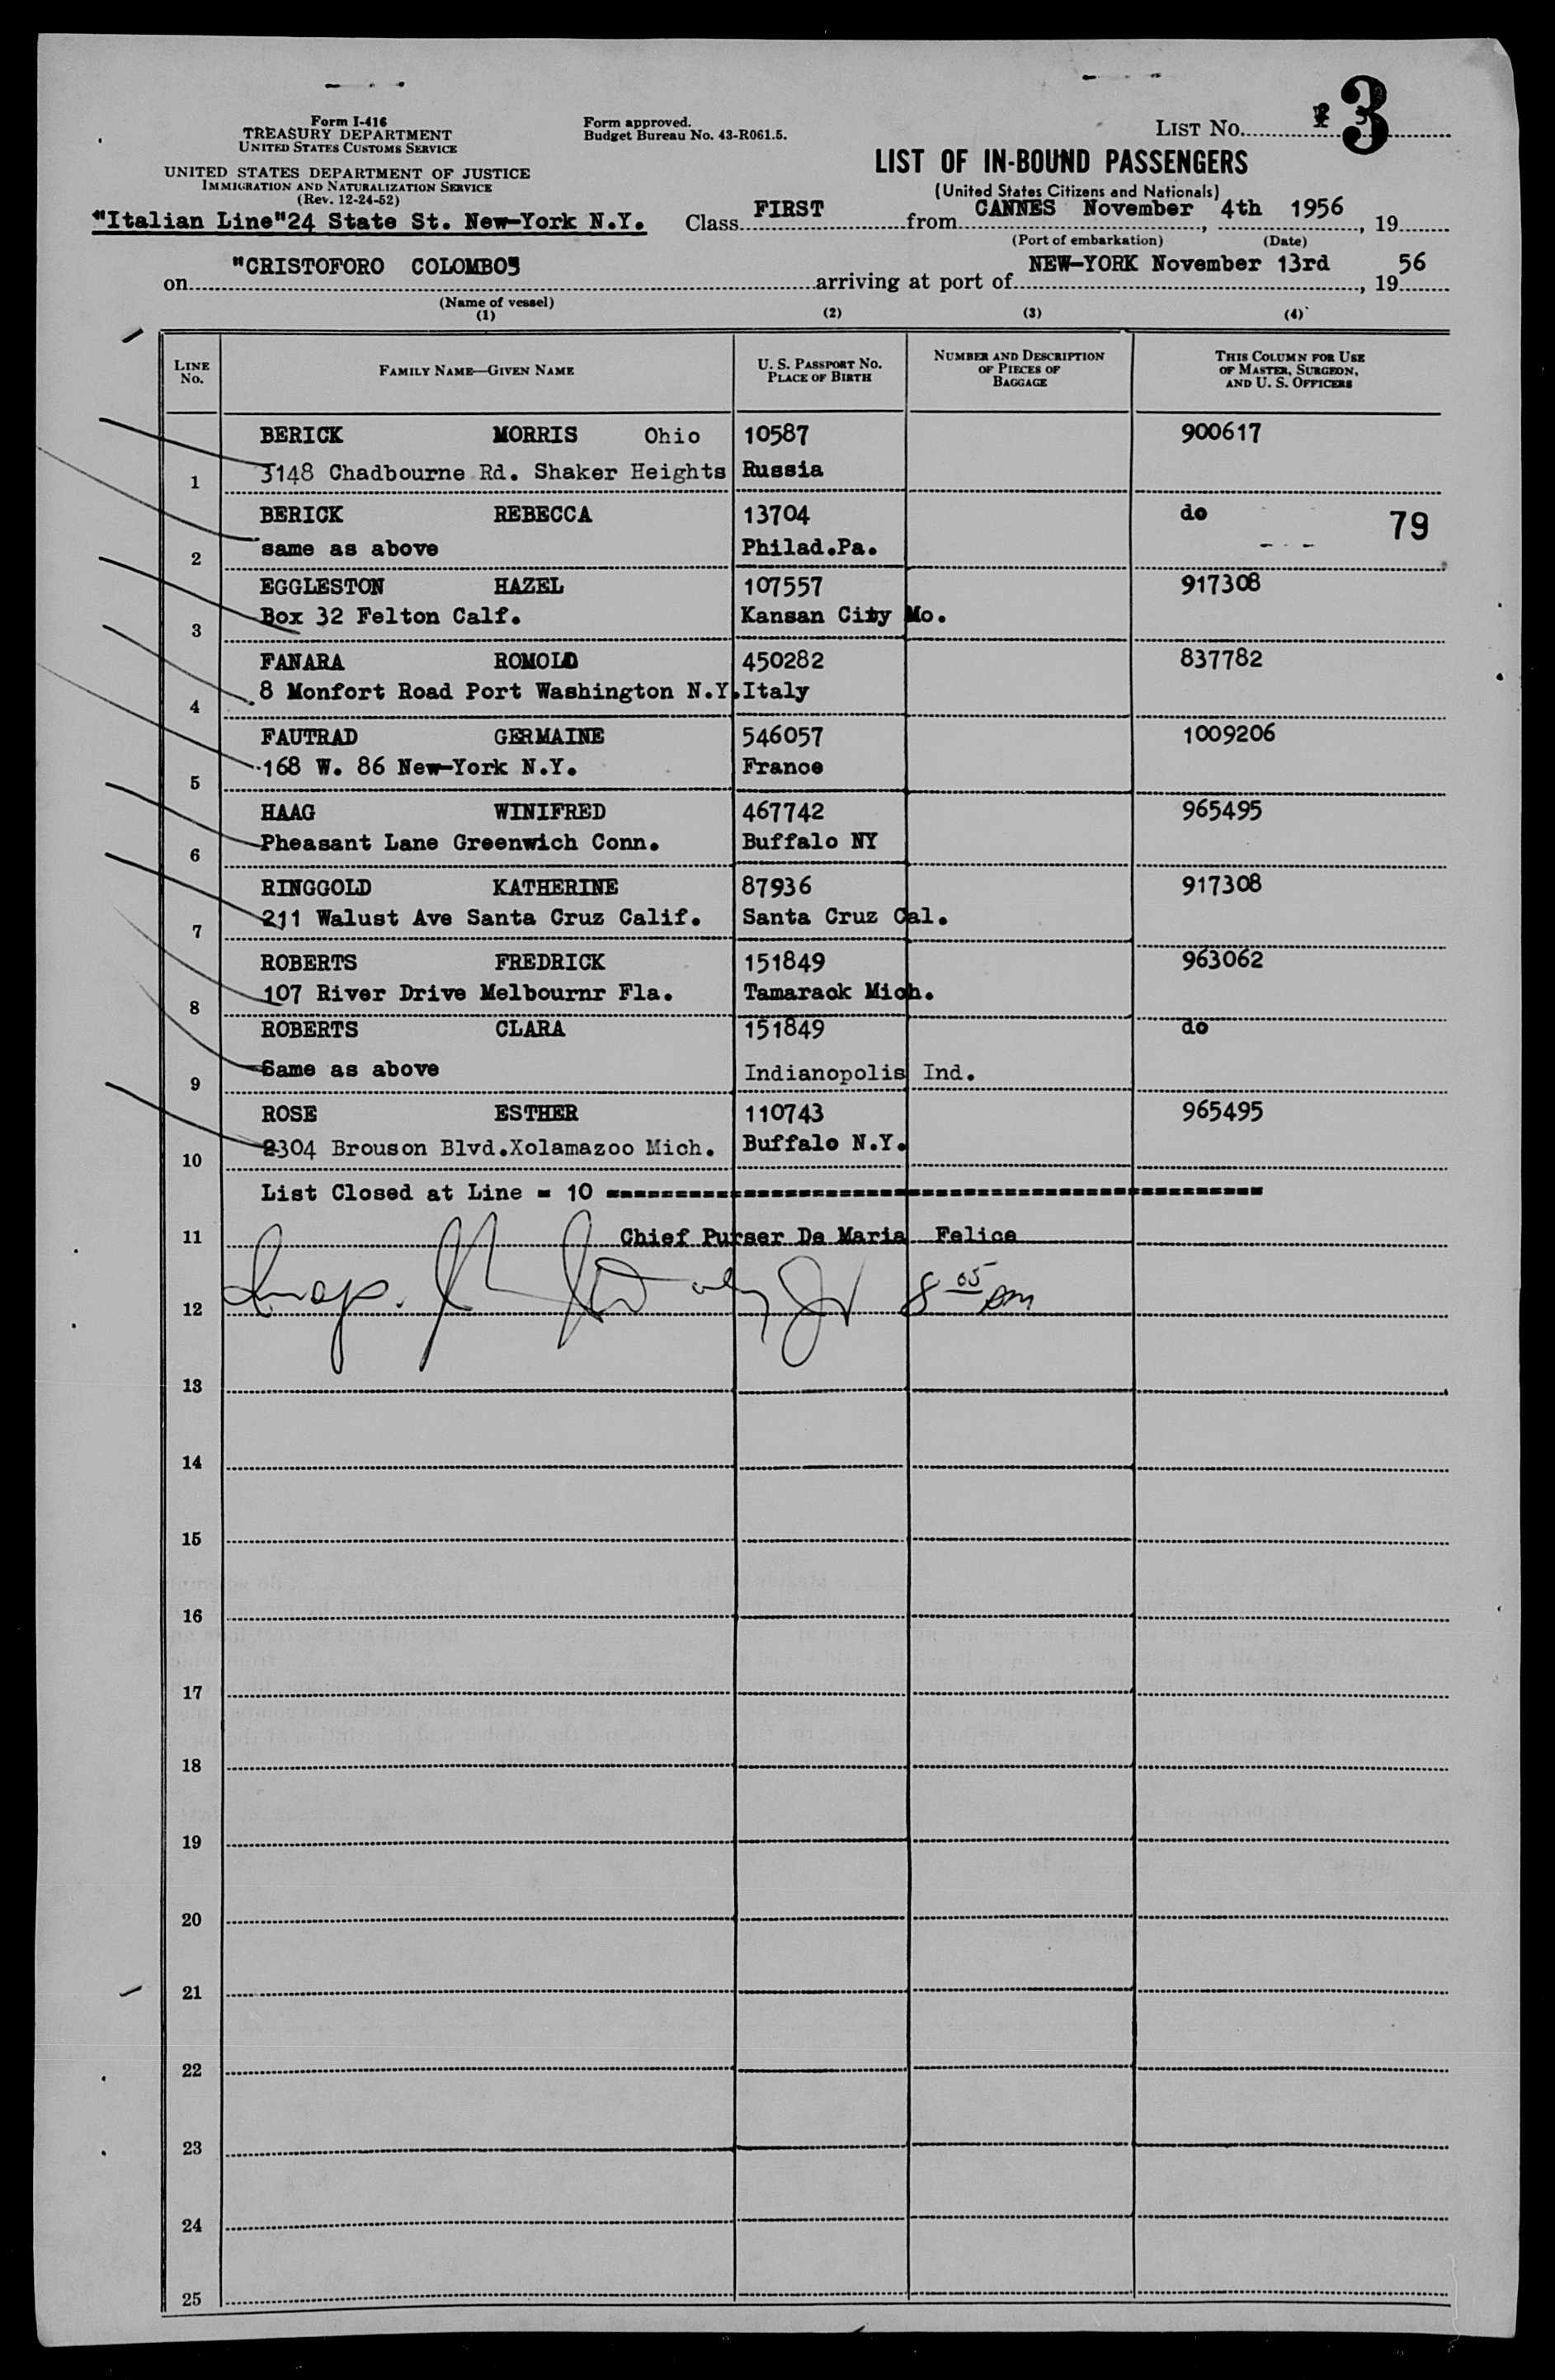 Form I-416
TREASURY DEPARTMENT
UNITED STATES CUSTOMS SERVICE
UNITED STATES DEPARTMENT OF JUSTICE
IMMIGRATION AND NATURALIZATION SERVICE
(Rev. 12-24-52)
Form approved.
Budget Bureau No. 43-R061.5.
LIST NO. 3
LIST OF IN-BOUND PASSENGERS
(United States Citizens and Nationals)
"Italian Line"24 State St. New-York N.Y. Class FIRST from CANNES November 4th 1956, 19
(Port of embarkation) (Date)
on "CRISTOFORO COLOMBO" arriving at port of NEW-YORK November 13rd, 19 56
(Name of vessel)
(1) (2) (3) (4)
LINE No. FAMILY NAME—GIVEN NAME U. S. PASSPORT NO. PLACE OF BIRTH NUMBER AND DESCRIPTION OF PIECES OF BAGGAGE THIS COLUMN FOR USE OF MASTER, SURGEON, AND U. S. OFFICERS
BERICK MORRIS Ohio 10587 900617
1 3148 Chadbourne Rd. Shaker Heights Russia
BERICK REBECCA 13704 do 79
2 same as above Philad.Pa.
EGGLESTON HAZEL 107557 917308
3 Box 32 Felton Calf. Kansan City Mo.
FANARA ROMOLO 450282 837782
4 8 Monfort Road Port Washington N.Y. Italy
FAUTRAD GERMAINE 546057 1009206
5 168 W. 86 New-York N.Y. France
HAAG WINIFRED 467742 965495
6 Pheasant Lane Greenwich Conn. Buffalo NY
RINGGOLD KATHERINE 87936 917308
7 211 Walust Ave Santa Cruz Calif. Santa Cruz Cal.
ROBERTS FREDRICK 151849 963062
8 107 River Drive Melbournr Fla. Tamarack Mich.
ROBERTS CLARA 151849 do
9 Same as above Indianopolis Ind.
ROSE ESTHER 110743 965495
10 2304 Brouson Blvd.Xolamazoo Mich. Buffalo N.Y.
List Closed at Line = 10
11 Chief Purser De Maria Felice
12 Insp. 8 05 pm
13
14
15
16
17
18
19
20
21
22
23
24
25